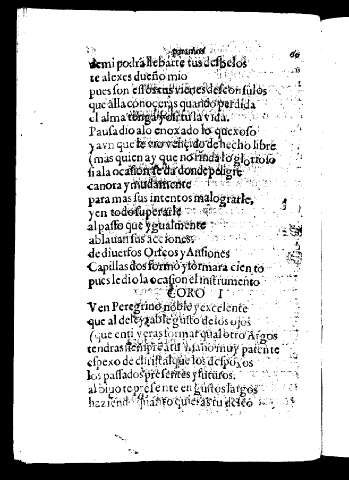 demi podrá llebarte tus desbelos
te alexes dueño mio
pues son essos tus vienes desconsulos
que alla conoceras quando perdida
el alma tenga yo sin tu la vida.
Pausa dio alo enoxado lo quexoso
y avn que le vio vencido de hecho libre
(mas quien ay que no rinda lo glorioso
si ala ocasion se da donde peligre
canora y mudamente
para mas sus intentos malograrle,
y en todo superarle
al passo que ygualmente
ablauan sus acciones.
de diuersos Orfeos y Anfiones
Capillas dos formó y tomara ciento
pues le dio la ocasion el instrumento
CORO I
Ven Peregrino noble y excelente
que al deleytable gusto de los ojos
(que en ti veras formar qual otro Argos
tendras siempre a tu mano muy patente
espexo de christal que los despoxos
los passados presentes y futuros.
al biuo te presente en gustos largos
haziend quanto quieras tu deseo